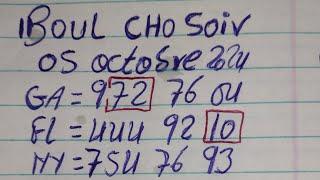 1BOUL CHO Soir
05 octobre 2024
GA = 972 76 04
FL = 444 92 10
NY = 754 76 93